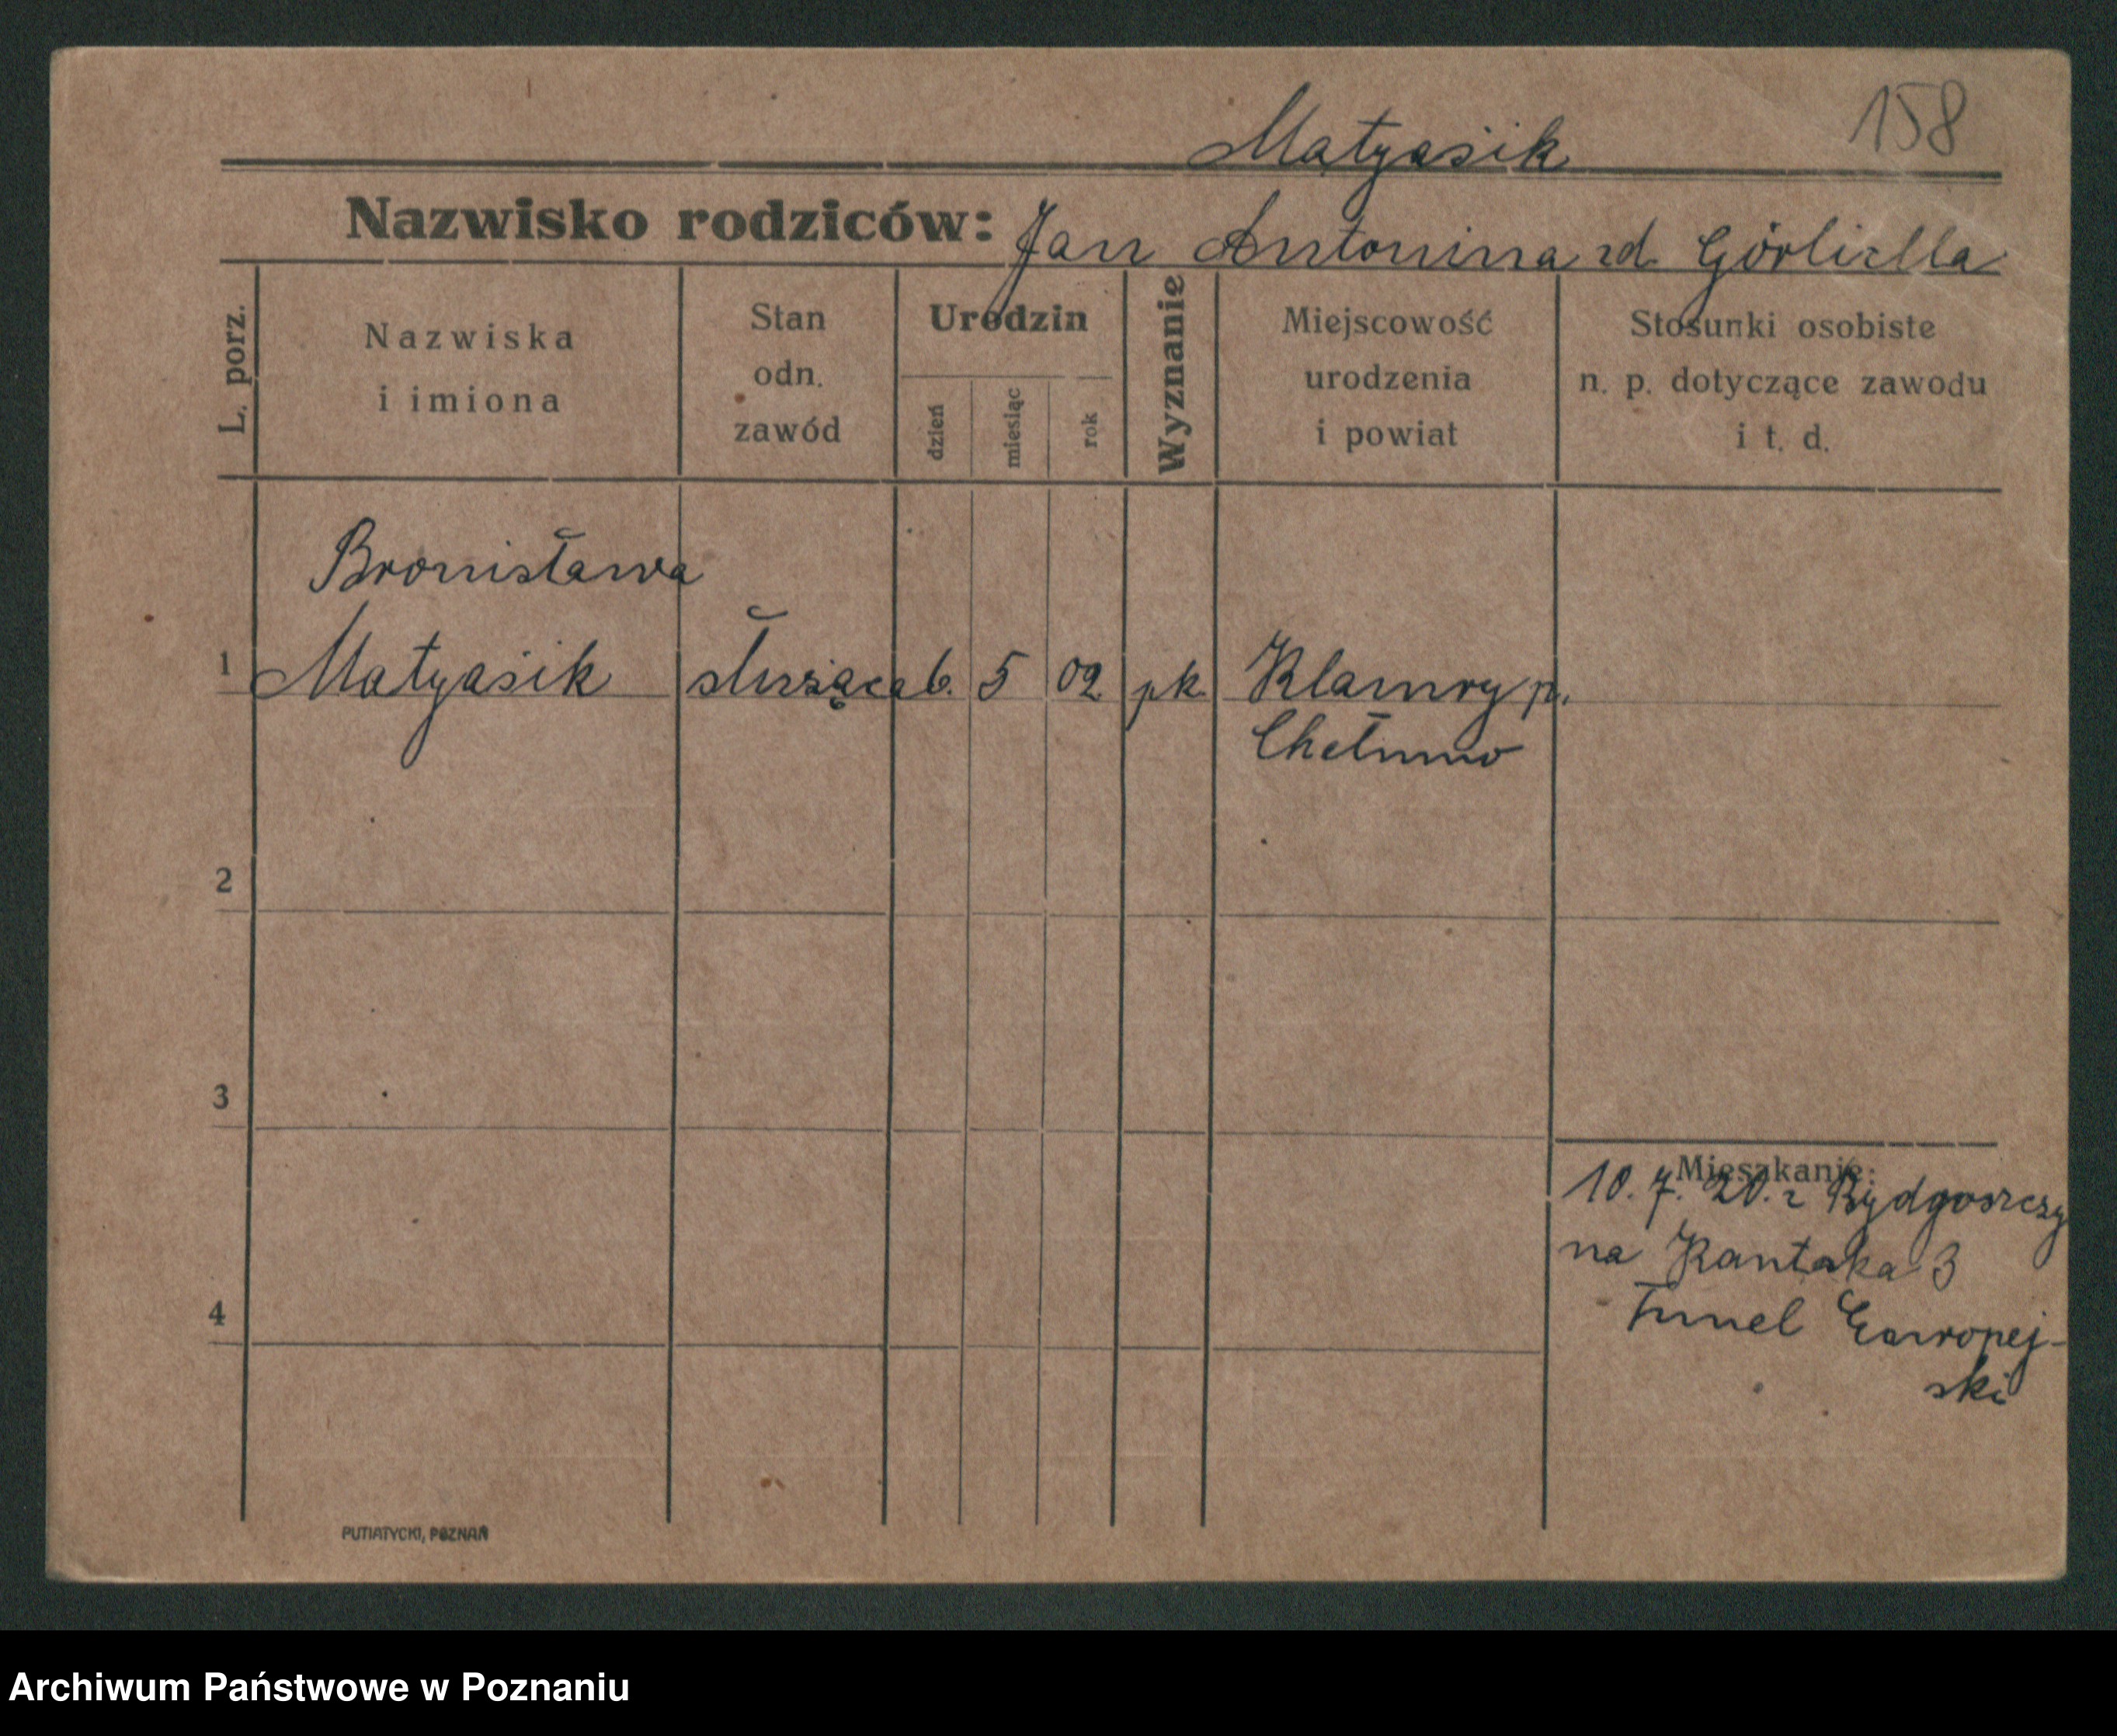 158
Matyasik
Nazwisko rodziców: Jan Antonina zd.
L. porz.
Nazwiska
i imiona
Stan
odn.
zawód
Urodzin
dzień
miesiąc
rok
Wyznanie
Miejscowość
urodzenia
i powiat
Stosunki osobiste
n. p. dotyczące zawodu
i t. d.
Bronisława
1 Matyasik służąca 6. 5 02 pk. Klamry p.
Chełmno
2
3
4
Mieszkanie:
10. 7. 20. z Bydgoszczy
na Kantaka 3
Tunel Europej-
ski
PUTIATYCKI, POZNAŃ
Archiwum Państwowe w Poznaniu